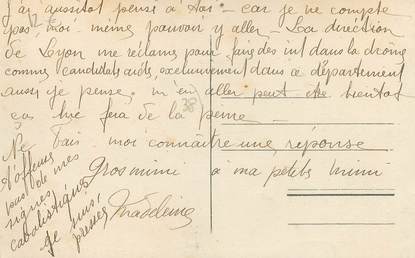 j'ai aussitôt pensé à toi - car je ne compte
pas, moi-même pouvoir y aller - La direction
de Lyon me réclame pour faire des int dans la drôme
comme candidats exclusivement dans ce département
aussi je pense m'en aller peut être bientôt
ça me fera de la peine -
38
Ne fais moi connaître une réponse
Gros mimi à ma petite mimi
Madeleine
t'offense
pas de mes
signes
cabalistiques
je suis
pressée